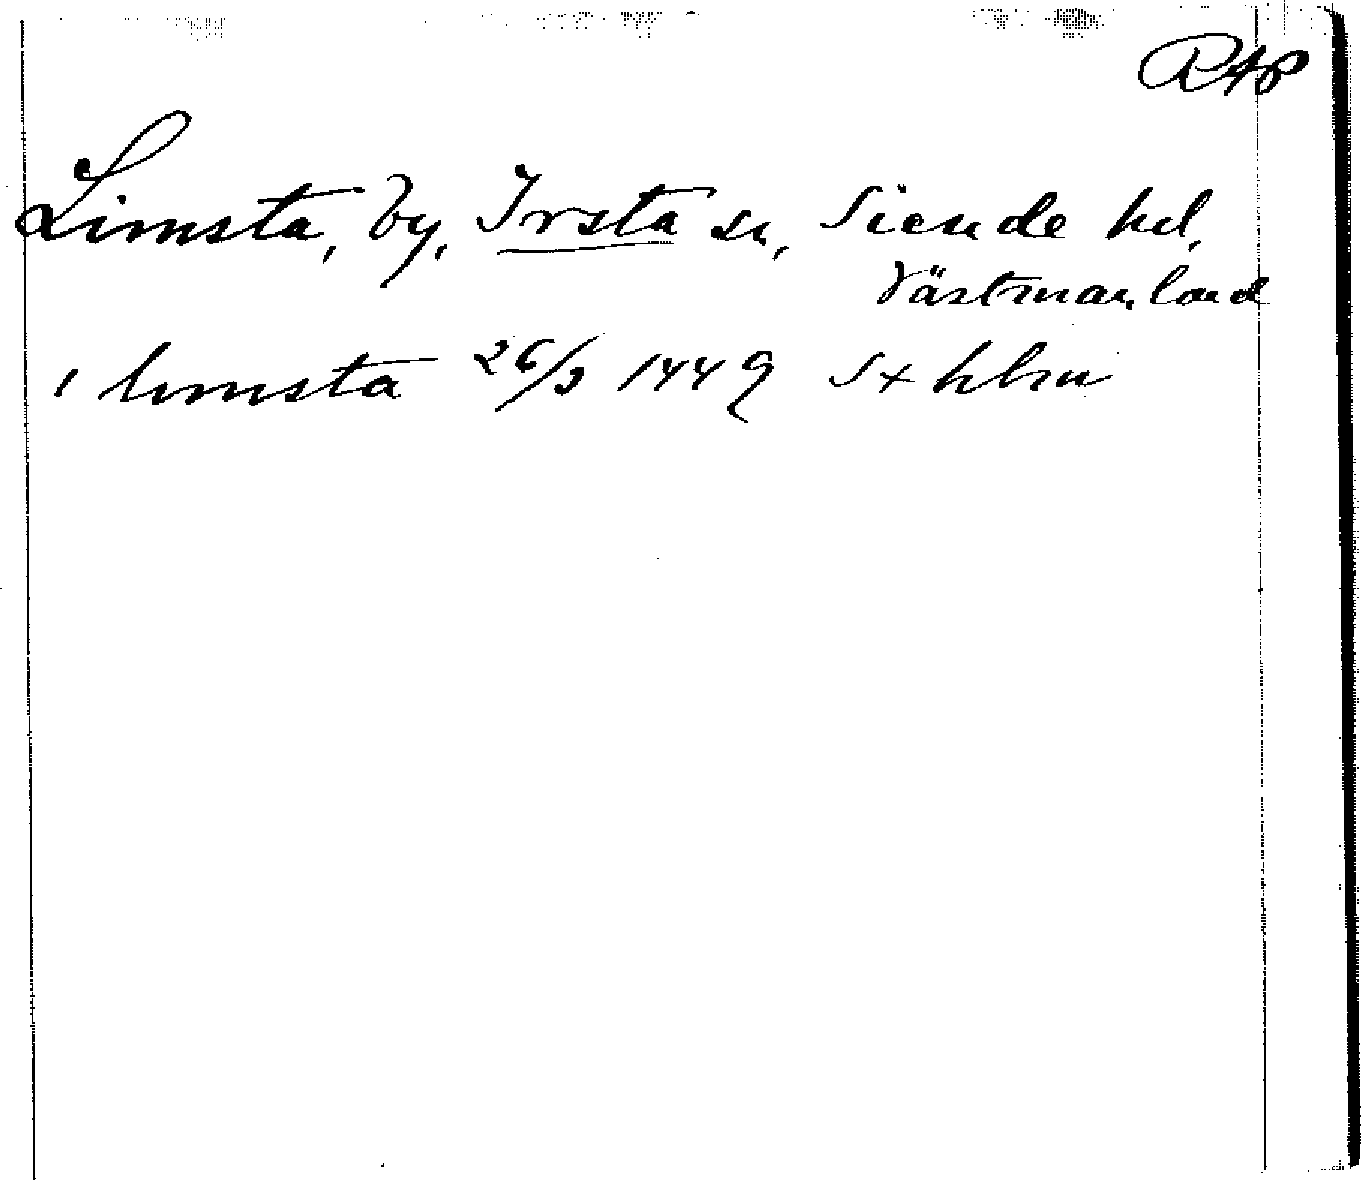 RAP
Limsta, by, Irsta sn, Siende hd,
Västmanland
i limsta 26/3 1449 Sthlm